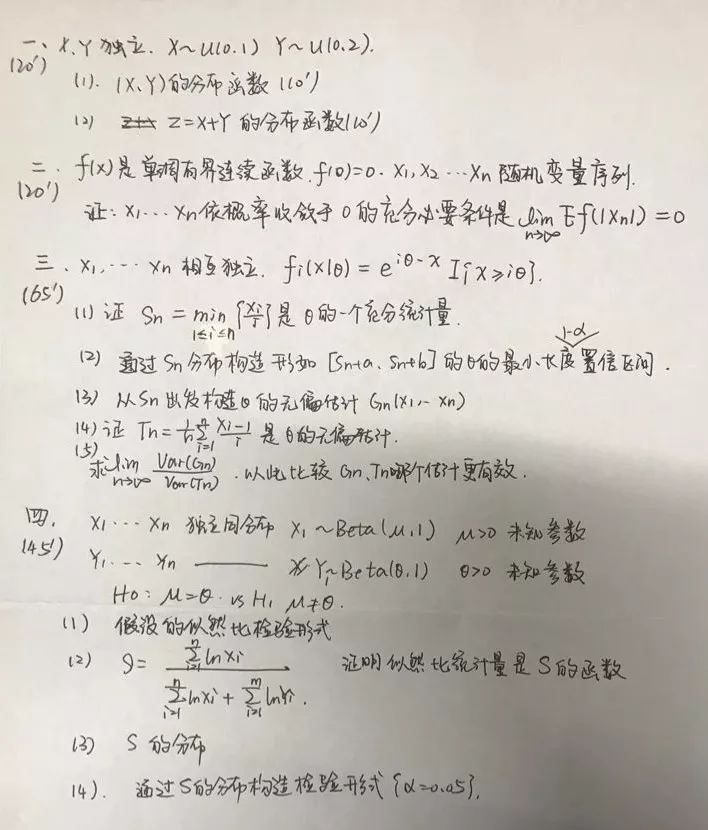 一、X,Y独立. X~U(0.1) Y~U(0.2).
(20')
(1). (X,Y)的分布函数(10')
(2) Z=X+Y的分布函数(10')
二. f(x)是单调有界连续函数. f(0)=0. X1,X2…Xn随机变量序列.
(20')
证: X1,…Xn依概率收敛于0的充分必要条件是 lim n→∞ Ef(|Xn|)=0
三、X1,…Xn相互独立. fi(x|θ)=e^{iθ-x} I{x≥iθ}.
(65')
(1) 证 Sn = min 1≤i≤n {Xi/i} 是θ的一个充分统计量.
1-α
(2) 通过Sn分布构造形如[Sn+a, Sn+b]的θ的最小长度置信区间.
(3) 从Sn出发构造θ的无偏估计 Gn(X1,…Xn)
(4) 证 Tn = 1/n Σ_{i=1}^{n} (Xi-1)/i 是θ的无偏估计.
(5) 求 lim n→∞ Var(Gn)/Var(Tn). 以此比较Gn、Tn哪个估计更有效.
四. X1…Xn 独立同分布 X1~Beta(μ,1) μ>0 未知参数
(45')
Y1,…Yn —— Y1~Beta(θ,1) θ>0 未知参数
H0: μ=θ. vs H1 μ≠θ.
(1) 假设的似然比检验形式
(2) S = Σ_{i=1}^{n} ln Xi / (Σ_{i=1}^{n} ln Xi + Σ_{i=1}^{m} ln Yi). 证明似然比统计量是S的函数
(3) S的分布
(4). 通过S的分布构造检验形式{α=0.05}.